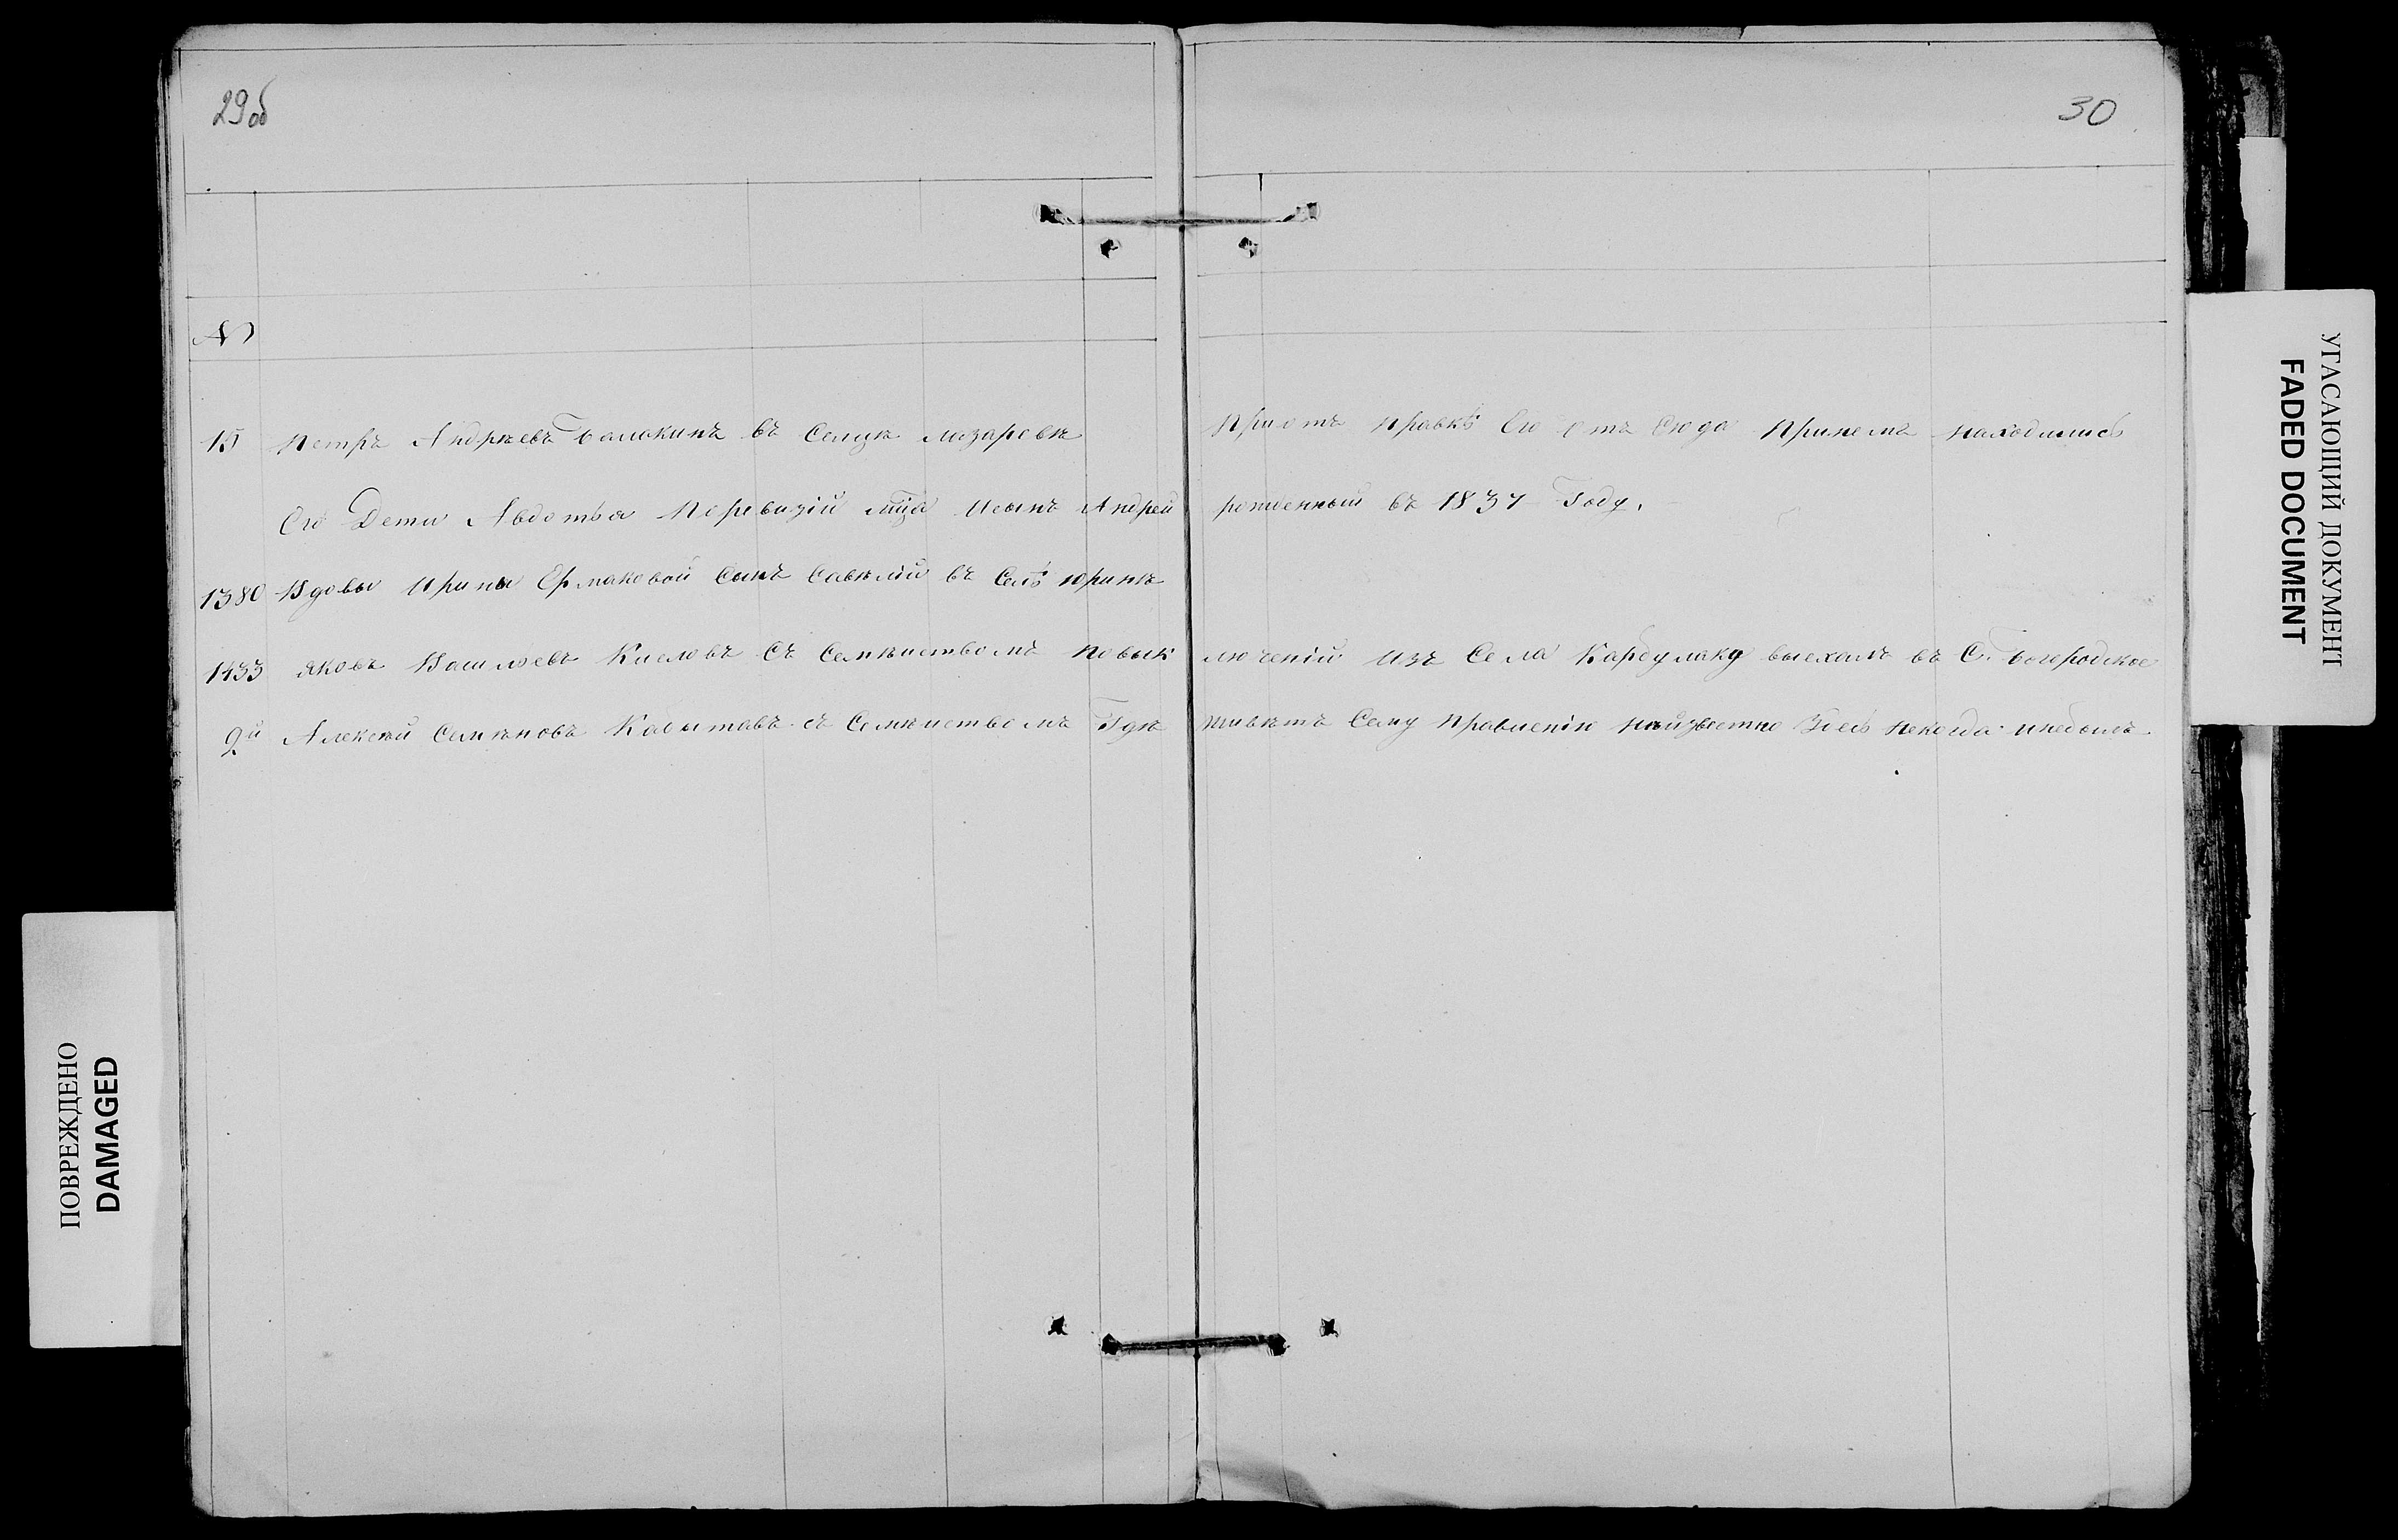 29об
30
№
15 Петръ Андреевъ Балакинъ въ Селце Лазаревке приотправке Его Отъ Сюда Принемъ находились
Его Дети Авдотья Поревизiй Исынъ Андрей рожденный въ 1837 Году.
1380 Вдовы Ирины Ермаковой Сынъ Савелiй въ Селе Юринке
1433 Яковъ Васильевъ Киеловъ Съ Семействомъ повык лючениiй Изъ Села Карбулаку выехалъ въ С. Богородское
2й Алексей Семеновъ Кабытавъ съ Семействомъ Где живетъ Сему Правленiю неизвестно Здесь некогда инебылъ
УГАСАЮЩИЙ ДОКУМЕНТ
FADED DOCUMENT
ПОВРЕЖДЕНО
DAMAGED